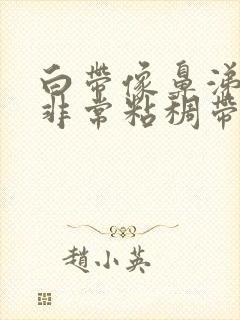 白帶像鼻涕
非常粘稠帶
趙小英